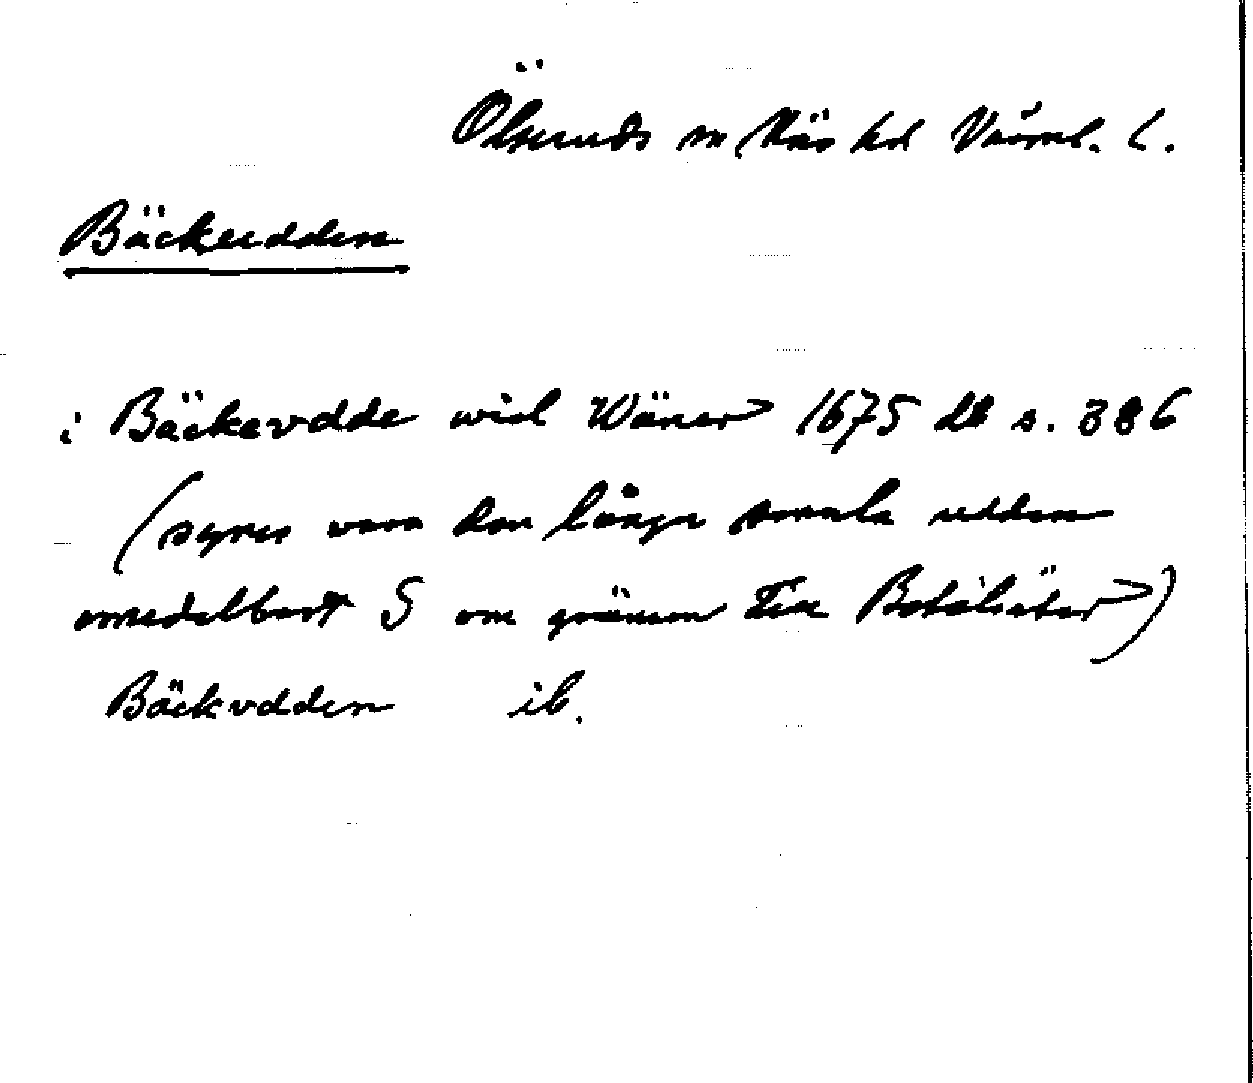 Ölseruds sn Näs hd Värml. l.
Bäckudden
i Bäckevdde wid Wäner 1675 db s. 386
(synes vara den långa smala udden
omedelbart S om gränsen till Botilsäter)
Bäckvdden ib.